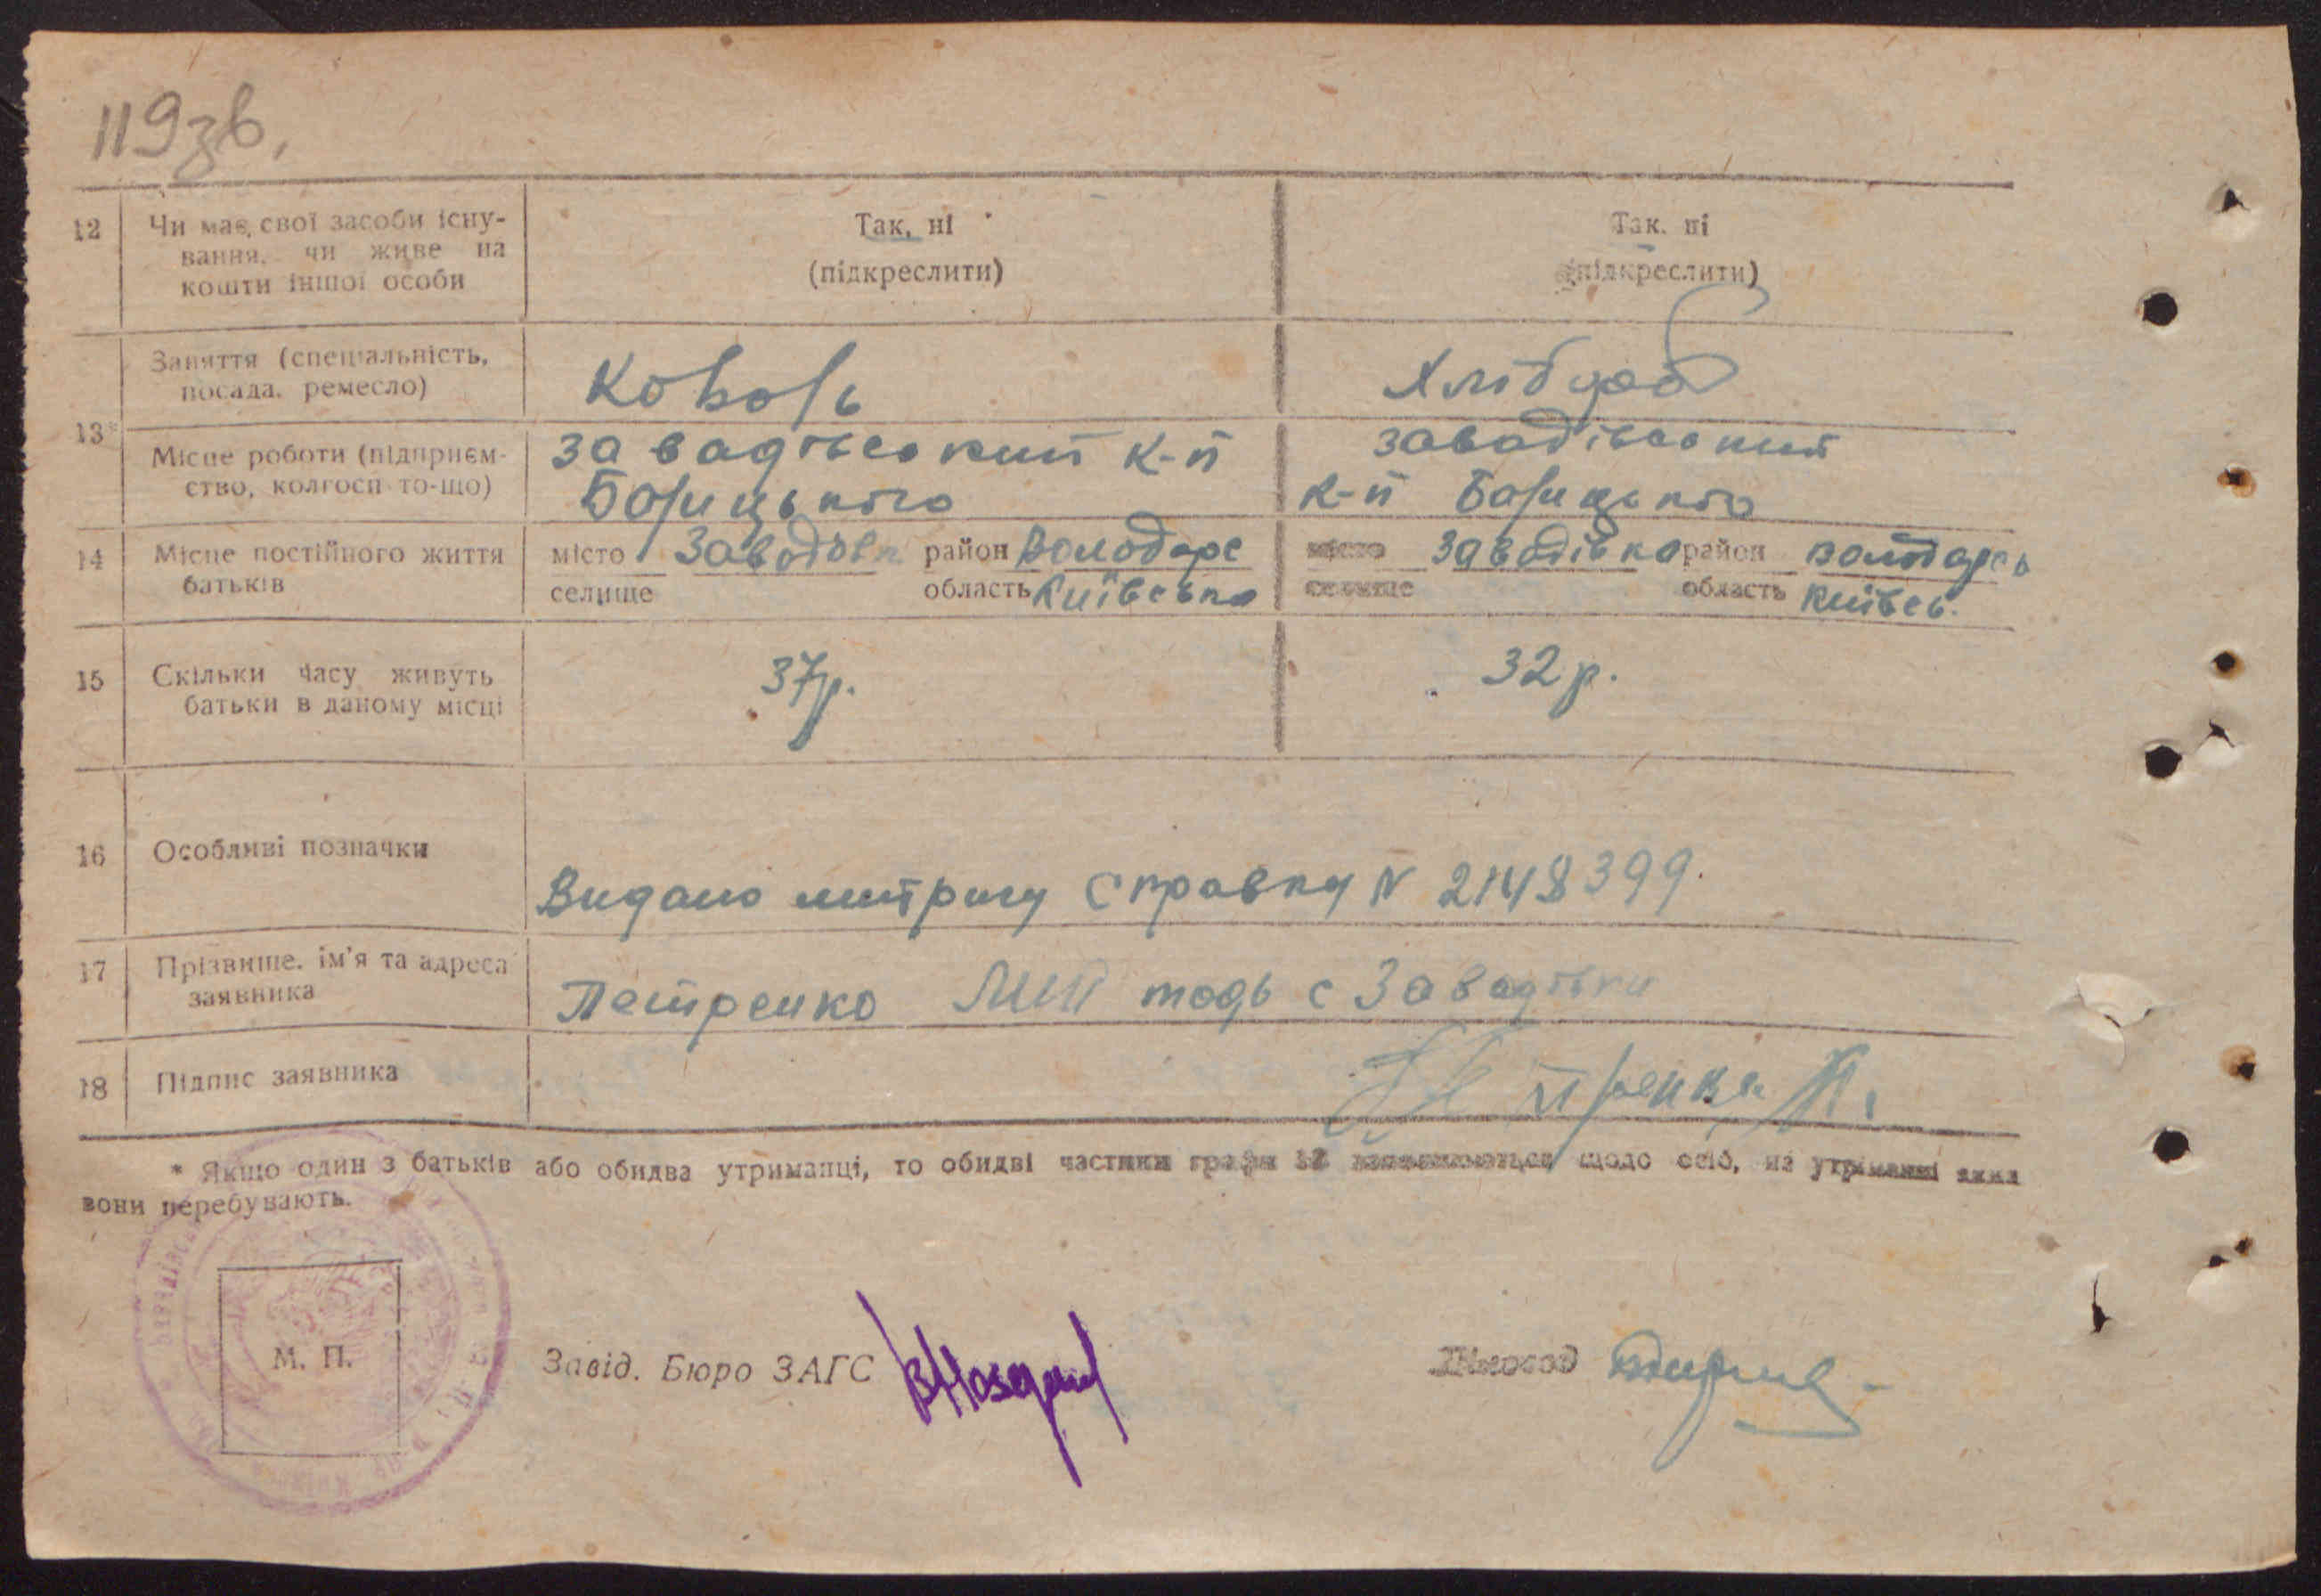 119зв.
12 Чи має свої засоби існу- Так, ні Так. ні
вання, чи живе на (підкреслити) (підкреслити)
кошти іншої особи
Заняття (спеціальність, Коваль Хлібороб
посада. ремесло)
13*
Місце роботи (підприєм- завадівський к-п завадівський
ство, колгосп то-що) Борицького к-п Борицького
14 Місце постійного життя місто Завадівка район Володарс місто Завадівка район володарсь
батьків селище область Київська селище область Київсь.
15 Скільки часу живуть 37р. 32р.
батьки в даному місці
16 Особливі позначки
Видано митрику Справку N 2148399.
17 Прізвище. ім'я та адреса
заявника Петренко тодь с Завадівки
18 Підпис заявника Петренко П.
* Якщо один з батьків або обидва утриманці, то обидві частини графи 13 заповнюються щодо осіб, на утриманні яких
вони перебувають.
М. П. Завід. Бюро ЗАГС